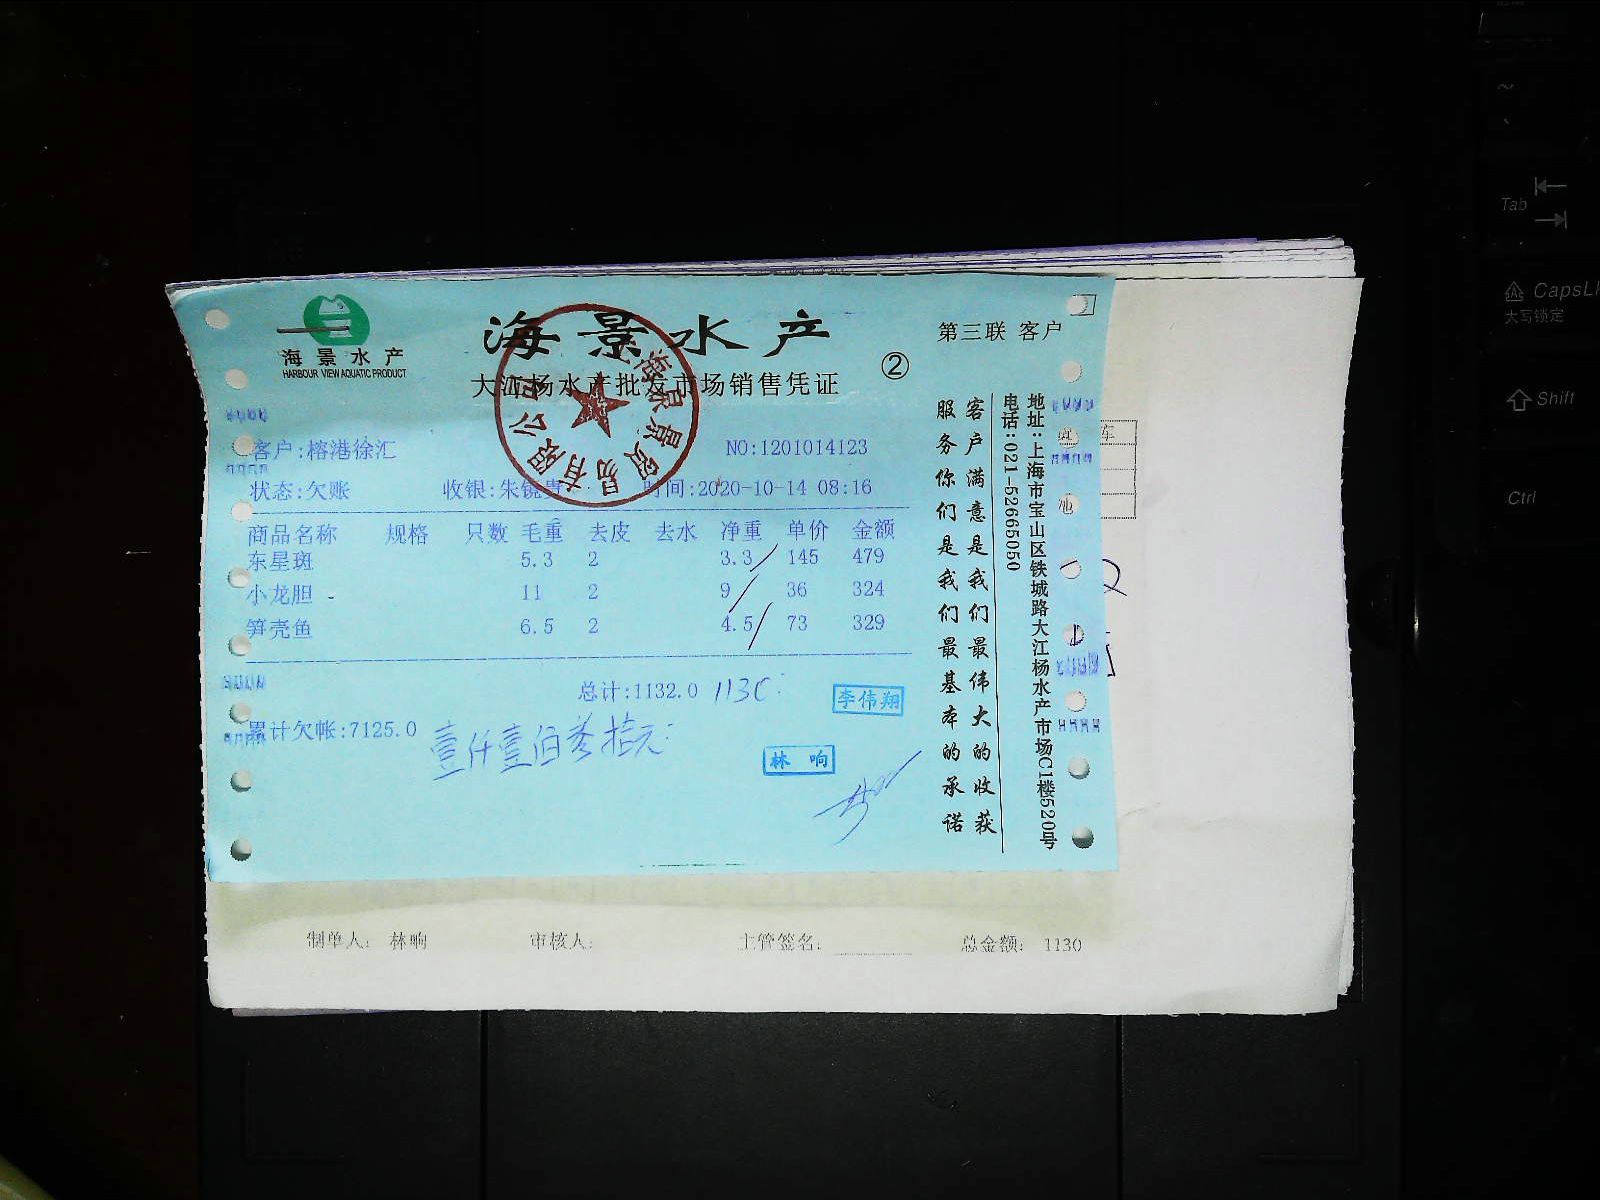 海景水产
HARBOUR VIEW AQUATIC PRODUCT
海景水产
大江杨水产批发市场销售凭证
②
第三联 客户
客户:榕港徐汇
NO:1201014123
状态:欠账 收银:朱镜贵 时间:2020-10-14 08:16
商品名称 规格 只数 毛重 去皮 去水 净重 单价 金额
东星斑 5.3 2 3.3 145 479
小龙胆 11 2 9 36 324
笋壳鱼 6.5 2 4.5 73 329
总计:1132.0 1130
李伟翔
累计欠帐:7125.0
壹仟壹佰叁拾元
林响
客户满意是我们最伟大的收获
服务你们是我们最基本的承诺
地址:上海市宝山区铁城路大江杨水产市场C1楼520号
电话:021-52665050
制单人: 林响 审核人: 主管签名: 总金额: 1130
Tab
CapsL
大写锁定
Shift
Ctrl